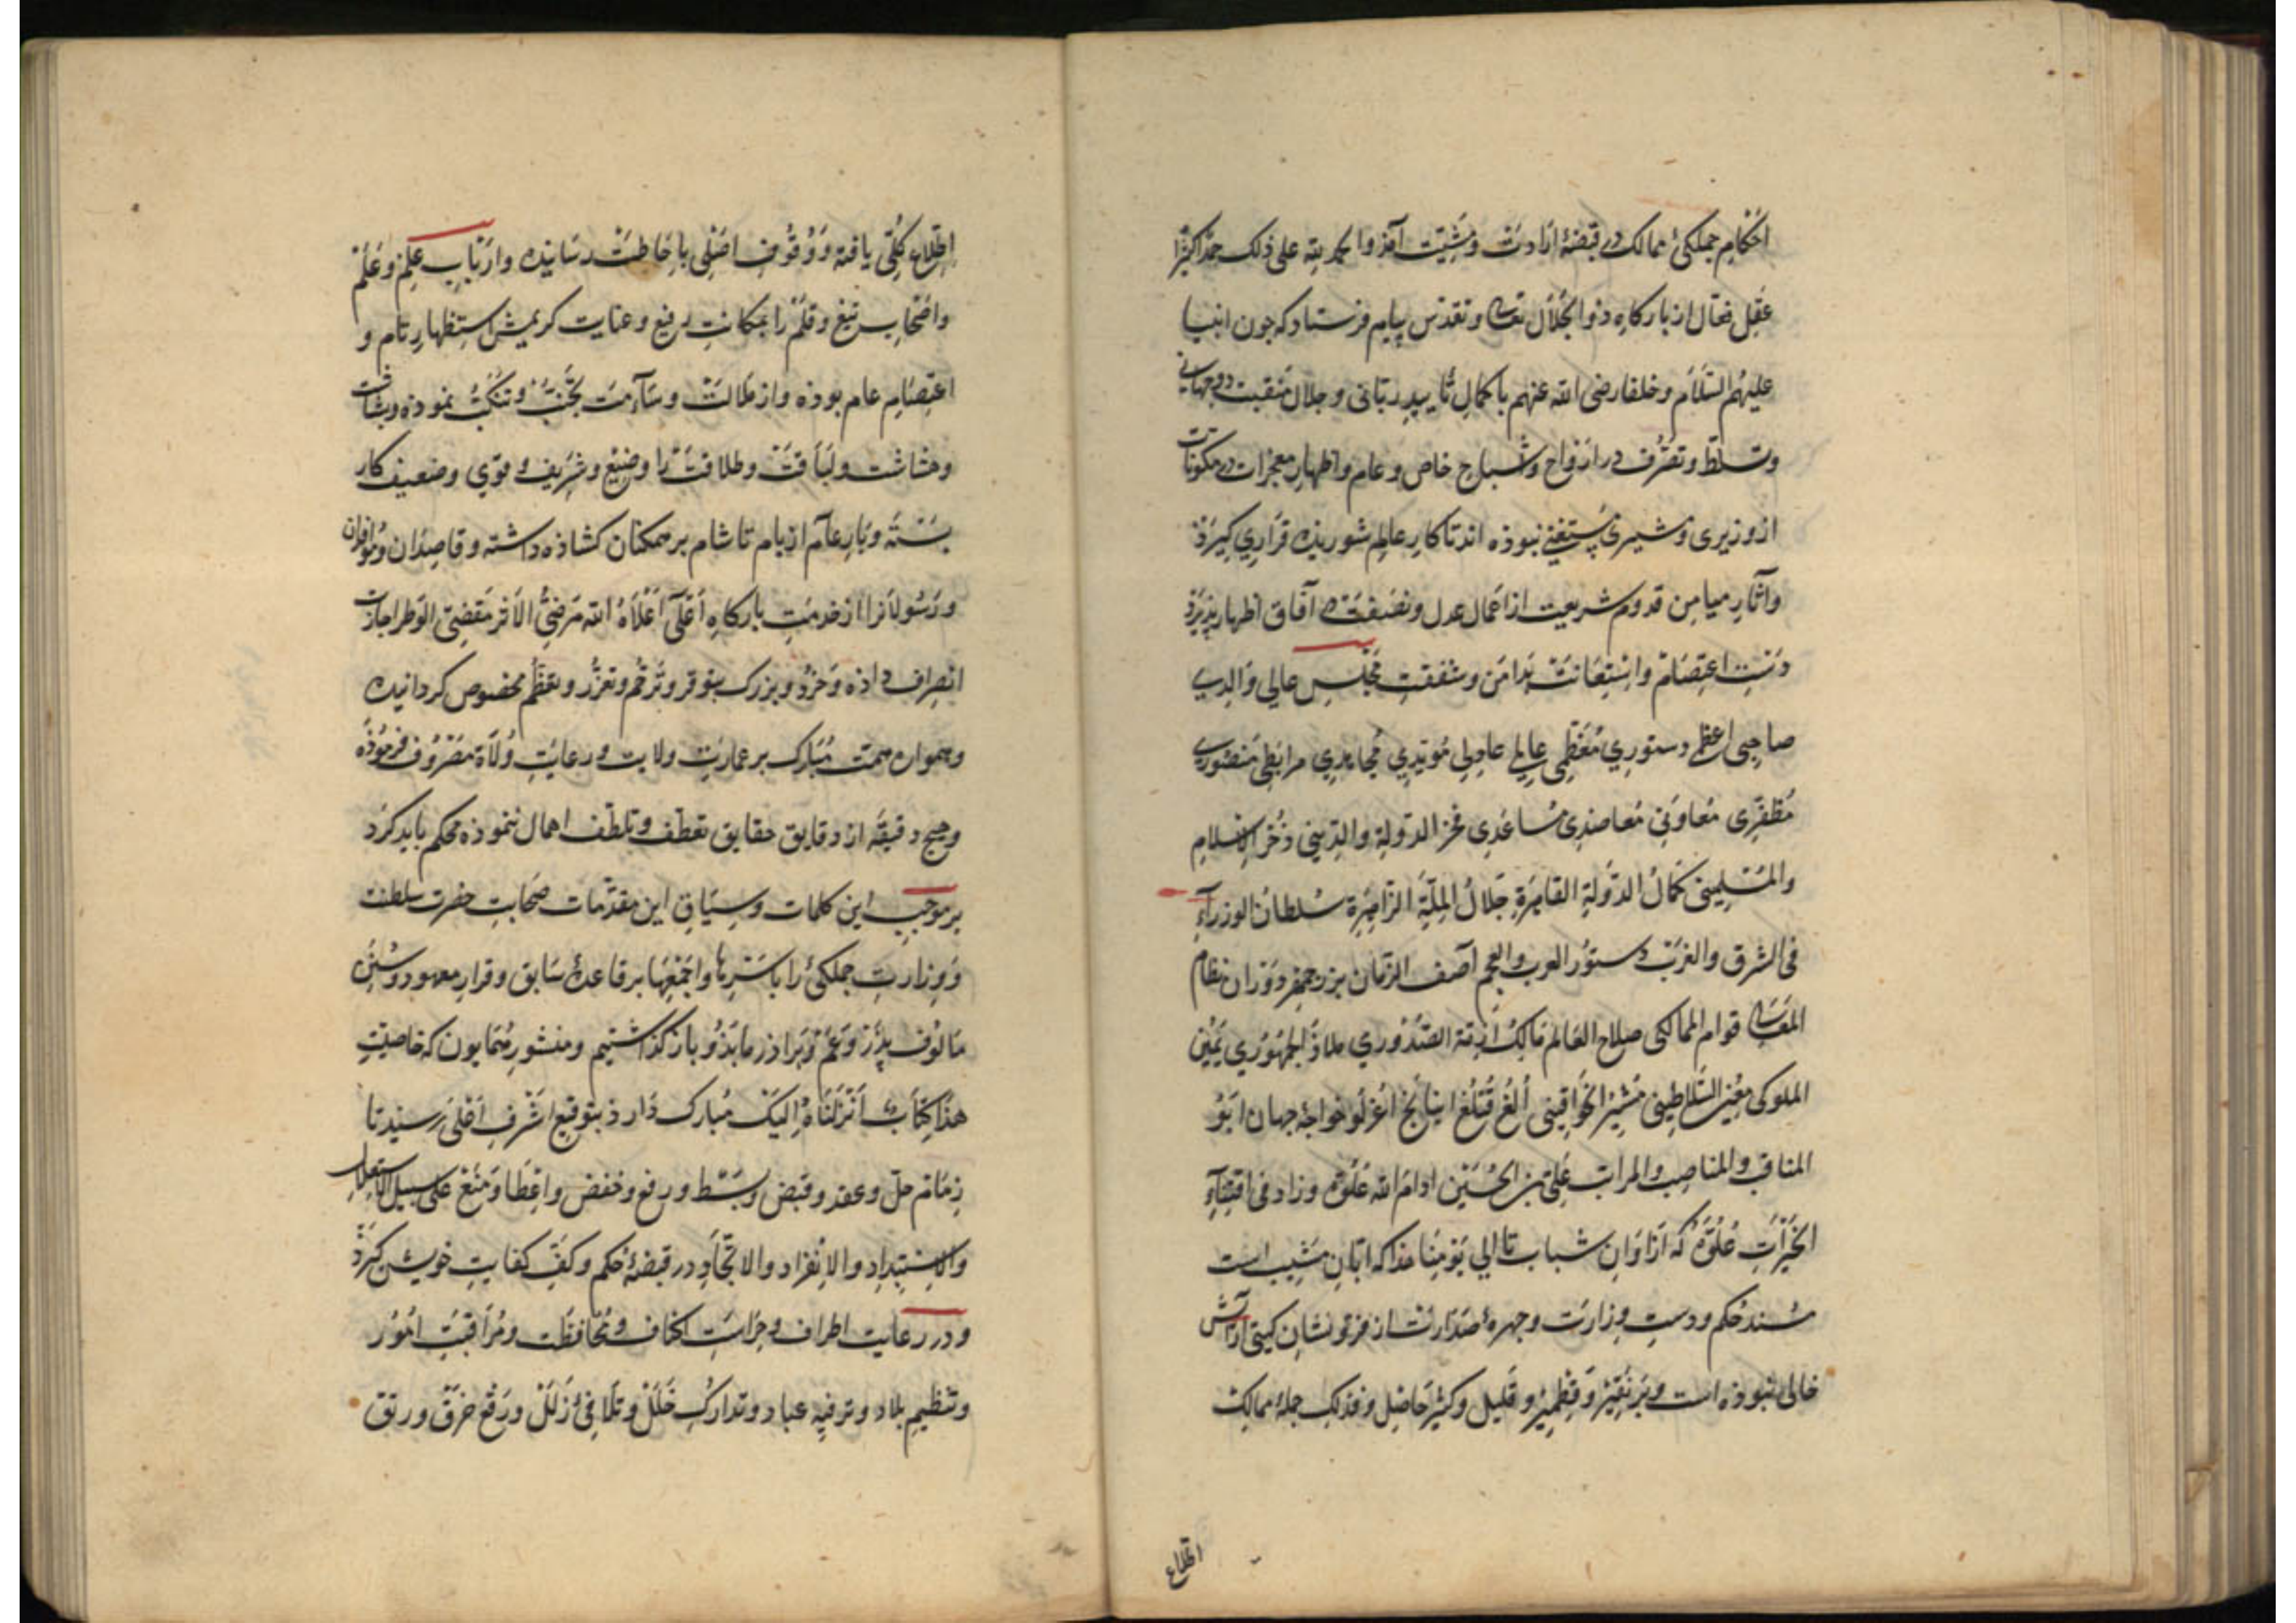 احکام جملکیٔ ممالک در قبضهٔ ارادت و مشیّت آمذ والحمد لله علی ذلک حمدا کثیرا
عقل فعّال از بارکاه ذوالجلال تعالی و تقدّس پیام فرستاد که جون انبیا
علیهم السّلام و خلفا رضی الله عنهم با کمال تأیید ربّانی و جلال منقبت دوجهانی
و تسلّط و تصرّف در ارواح و اشباح خاص و عام و اظهار معجزات در مکونات
از وزیری و مشیری مستغنی نبوذه اند تا کار عالم شوریده قراری کیرذ
و آثار میامن قدوم شریعت از اعمال عدل و نصفت در آفاق اظهار پذیرذ
دست اعتصام و استعانت بدامن و شفقت مجلس عالی والدی
صاحبی اعظمی دستوری معظّمی عالمی عادلی مؤیّدی مجاهدی مرابطی منصوری
مظفّری معاونی معاضدی مساعدی فخر الدولة والدّینی ذخر الاسلام
والمسلمینی کمال الدّولة القاهرة جلال الملّة الزّاهرة سلطان الوزرآء
فی الشرق والغرب دستور العرب والعجم آصف الزّمان بزرجمهر دوران نظام
المعالی قوام الممالکی صلاح العالم مالک ازمّة الصّدوری ملاذ الجمهوری یمین
الملوکی معین السّلاطینی مشیر الخواقینی الغ قتلغ اینانج اغزلو خواجهٔ جهان ابو
المناقب والمناصب والمراتب علی بن الحسین ادام الله علوّه و زاد فی اقتناء
الخیرات غلوّه که از اوان شباب تا الی یومنا هذا که ابّان مشیب است
مسند حکم و دست وزارت و جهرهٔ صدارت از فرّ تو نشان کیتی آرایش
خالی نبوذه است و بر نقیر و قطمیر و قلیل و کثیر حاصل و فذلک جملهٔ ممالک
اطّلاع
اطّلاع کلّی یافته و وقوف اصلی باحاطت رسانیده و ارباب علم و علم
و اصحاب تیغ و قلم را بمکانت رفیع و عنایت کریمش استظهار تام و
اعتصام عام بوذه و از ملالت و سآمت تجنّب و تنکّب نموذه و بشاشت
و هشاشت و لباقت و طلاقت را وضیع و شریف و قوی و ضعیف کار
بسته و بار عآم از بام تا شام بر همکنان کشاذه داشته و قاصدان و وافدان
و رسولانرا از خدمت بارکاه اعلی اعلاه الله مرضیّ الاثر مقضیّ الوطر اجازت
انصراف داذه و خرد و بزرک بتوقّر و ترحّم و تعزّز و تعظّم مخصوص کردانیده
و همواره همت مبارک بر عمارت ولایت و رعایت ولاة مصروف فرموذه
و هیج دقیقه از دقایق حقایق تعطّف و تلطّف اهمال ننموذه محکم باید کرد
بر موجب این کلمات و سیاق این مقدّمات صحابت حضرت سلطنت
و وزارت جملکی را باسرها و اجمعها بر قاعدهٔ سابق و قرار معهود و سنن
مألوف پدر و عمّ و برادر ما بذو باز کذاشتیم و منشور همایون که خاصیّت
هذا کتاب انزلناه الیک مبارک دارذ بتوقیع اشرف اعلی رسید تا
زمام حلّ و عقد و قبض و بسط و رفع و خفض و اعطا و منع علی سبیل الاستقلال
والاستبداد والانفراد والاتّحاد در قبضهٔ حکم و کفّ کفایت خویش کیرذ
و در رعایت اطراف و حراست اکناف و محافظت و مراقبت امور
و تنظیم بلاد و ترفیه عباد و تدارک خلل و تلافیٔ زلل و رفع خرق و رتق